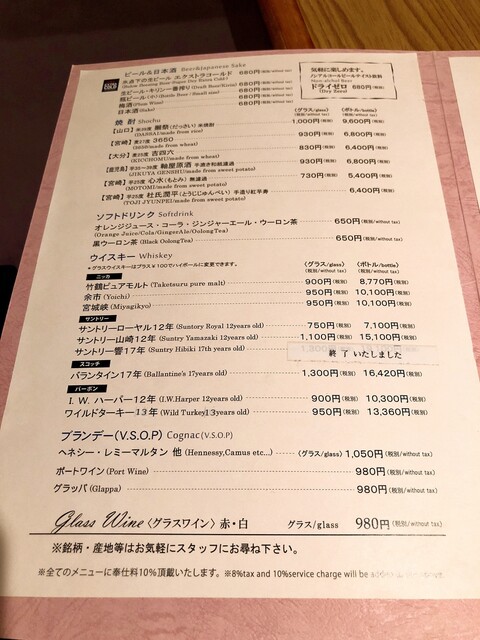 ビール&日本酒 Beer&Japanese Sake
氷点下の生ビール エクストラコールド 680円(税別/without tax)
生ビール・キリン一番搾り (Draft Beer/Kirin) 680円(税別/without tax)
瓶ビール(小) (Bottle Beer/Small size) 680円(税別/without tax)
梅酒 (Plum Wine) 680円(税別/without tax)
日本酒 (Sake) 680円(税別/without tax)
気軽に楽しめます。
ノンアルコールビールテイスト飲料
Non-alcohol Beer
ドライゼロ 680円(税別)
(Dry Zero)
焼酎 Shochu
〈グラス/glass〉 〈ボトル/bottle〉
(税別/without tax) (税別/without tax)
【山口】 米39度 獺祭(だっさい) 米焼酎 1,000円(税別) 9,600円(税別)
(DASSAI/made from rice)
【宮崎】 麦37度 3650 930円(税別) 6,800円(税別)
(3650/made from wheat)
【大分】 麦25度 吉四六 830円(税別) 6,400円(税別)
(KICCHOMU/made from wheat)
【鹿児島】 芋38〜39度 軸屋原酒 手濾き和紙濾過 930円(税別) 6,800円(税別)
(JIKUYA GENSHU/made from sweet potato)
【宮崎】 芋25度 心水(もとみ) 無濾過 730円(税別) 5,400円(税別)
(MOTOMI/made from sweet potato)
【宮崎】 芋25度 杜氏潤平(とうじじゅんぺい) 手造り紅早寿 6,400円(税別)
(TOJI JYUNPEI/made from sweet potato)
ソフトドリンク Softdrink
オレンジジュース・コーラ・ジンジャーエール・ウーロン茶 650円(税別/without tax)
(Orange Juice/Cola/GingerAle/OolongTea)
黒ウーロン茶 (Black OolongTea) 650円(税別/without tax)
ウイスキー Whiskey
*グラスウイスキーはプラス¥100でハイボールに変更できます。
〈グラス/glass〉 〈ボトル/bottle〉
(税別/without tax) (税別/without tax)
ニッカ
竹鶴ピュアモルト (Taketsuru pure malt) 900円(税別) 8,770円(税別)
余市 (Yoichi) 950円(税別) 10,100円(税別)
宮城峡 (Miyagikyo) 950円(税別) 10,100円(税別)
サントリー
サントリーローヤル12年 (Suntory Royal 12years old) 750円(税別) 7,100円(税別)
サントリー山崎12年 (Suntry Yamazaki 12years old) 1,100円(税別) 15,100円(税別)
サントリー響17年 (Suntry Hibiki 17th years old) 終了いたしました
スコッチ
バランタイン17年 (Ballantine's 17years old) 1,300円(税別) 16,420円(税別)
バーボン
I. W. ハーパー12年 (I.W.Harper 12years old) 900円(税別) 10,300円(税別)
ワイルドターキー13年 (Wild Turkey13years old) 950円(税別) 13,360円(税別)
ブランデー(V.S.O.P) Cognac(V.S.O.P)
ヘネシー・レミーマルタン 他 (Hennessy,Camus etc...) 〈グラス/glass〉 1,050円(税別/without tax)
ポートワイン (Port Wine) 980円(税別/without tax)
グラッパ (Glappa) 980円(税別/without tax)
Glass Wine 〈グラスワイン〉 赤・白 グラス/glass 980円(税別/without tax)
※銘柄・産地等はお気軽にスタッフにお尋ね下さい。
※全てのメニューに奉仕料10%頂戴いたします。 ※8%tax and 10%service charge will be